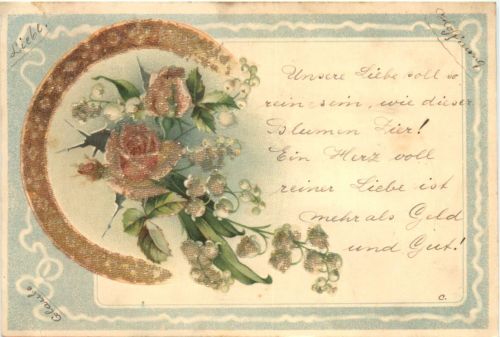 Liebe,
Hoffnung
Unsere Liebe soll so
rein sein, wie dieser
Blumen Zier!
Ein Herz voll
reiner Liebe ist
mehr als Geld
und Gut!
Glaube
C.